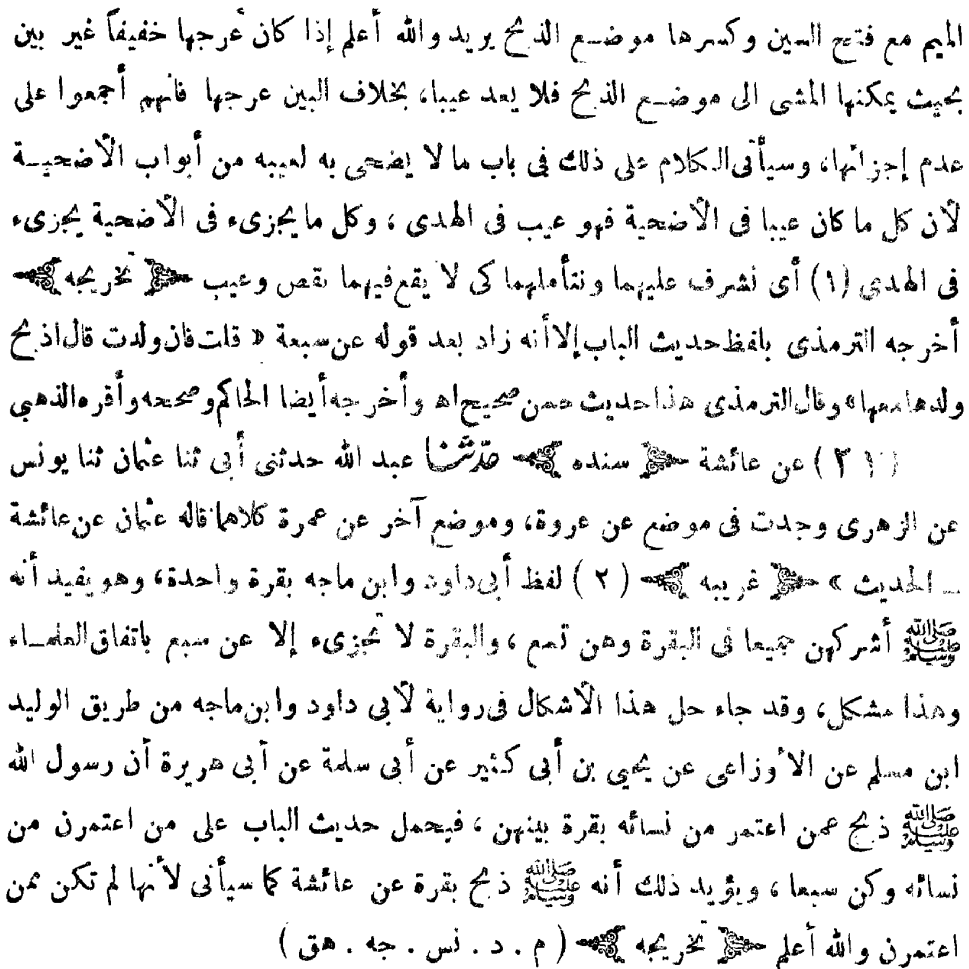 الميم مع فتح السين وكسرها موضع الذبح يريد والله أعلم إذا كان عرجها خفيفاً غير بين
بحيث يمكنها المشى الى موضع الذبح فلا يعد عيبا، بخلاف البين عرجها فانهم أجمعوا على
عدم إجزائها، وسيأتى الكلام على ذلك فى باب ما لا يضحى به لعيبه من أبواب الأضحية
لأن كل ما كان عيبا فى الأضحية فهو عيب فى الهدى ، وكل ما يجزىء فى الأضحية يجزىء
فى الهدى (١) أى نشرف عليهما ونتأملهما كى لا يقع فيهما نقص وعيب ﴿ تخريجه ﴾
أخرجه الترمذى بلفظ حديث الباب إلا أنه زاد بعد قوله عن سبعة « قلت فان ولدت قال اذبح
ولدها معها» وقال الترمذى هذا حديث حسن صحيح اه وأخرجه أيضا الحاكم وصححه وأقره الذهبي
عن عائشة ﴿ سنده ﴾ حدثنا عبد الله حدثنى أبى ثنا عثمان ثنا يونس
عن الزهرى وجدت فى موضع عن عروة، وموضع آخر عن عمرة كلاهما قاله عثمان عن عائشة
ــ الحديث » ﴿ غريبه ﴾ (٢) لفظ أبى داود وابن ماجه بقرة واحدة، وهو يفيد أنه
ﷺ أشركهن جميعا فى البقرة وهن تسع ، والبقرة لا تجزىء إلا عن سبع باتفاق العلماء
وهذا مشكل، وقد جاء حل هذا الأشكال فى رواية لأبى داود وابن ماجه من طريق الوليد
ابن مسلم عن الأوزاعى عن يحيى بن أبى كثير عن أبى سلمة عن أبى هريرة أن رسول الله
ﷺ ذبح عمن اعتمر من نسائه بقرة بينهن ، فيحمل حديث الباب على من اعتمرن من
نسائه وكن سبعا ، ويؤيد ذلك أنه ﷺ ذبح بقرة عن عائشة كما سيأتى لأنها لم تكن ممن
اعتمرن والله أعلم ﴿ تخريجه ﴾ ( م . د . نس . جه . هق )